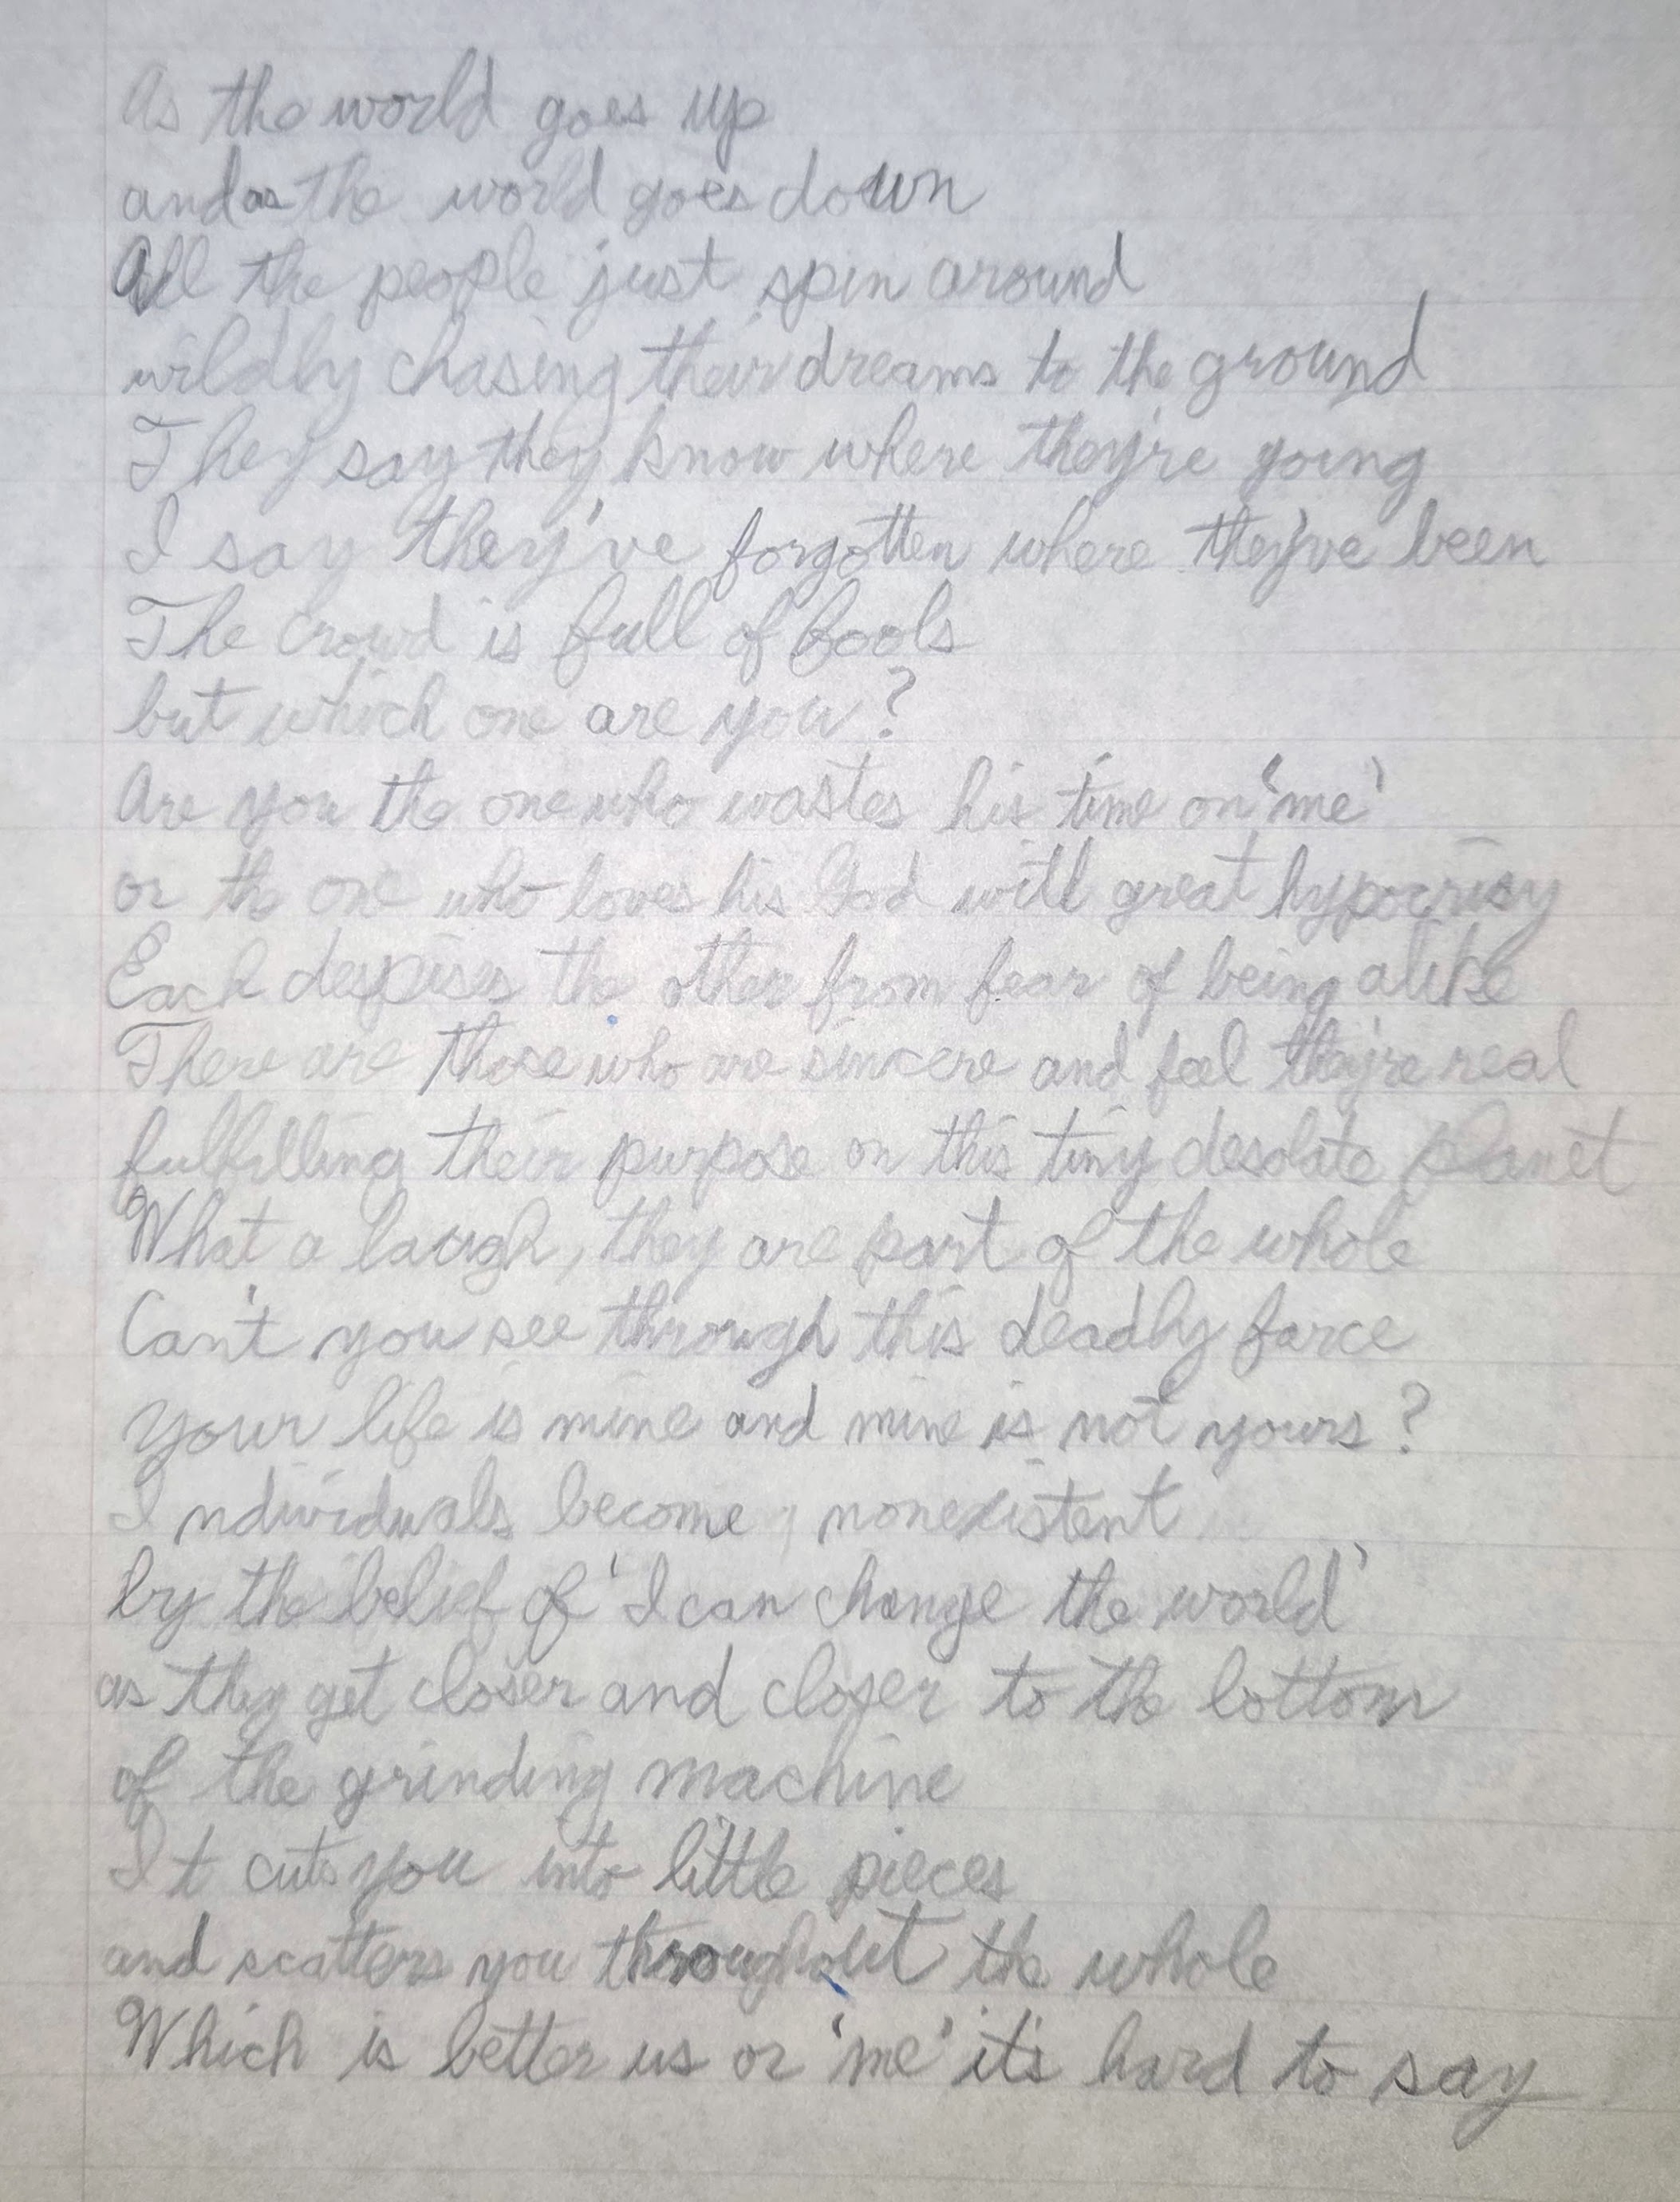 As the world goes up
and as the world goes down
All the people just spin around
wildly chasing their dreams to the ground
They say they know where they're going
I say they've forgotten where they've been
The crowd is full of fools
but which one are you?
Are you the one who wastes his time on 'me'
or the one who loves his God with great hypocrisy
Each despises the other from fear of being alike
There are those who are sincere and feel they're real
fulfilling their purpose on this tiny desolate planet
What a laugh, they are part of the whole
Can't you see through this deadly farce
Your life is mine and mine is not yours?
Individuals become nonexistent
by the belief of 'I can change the world'
as they get closer and closer to the bottom
of the grinding machine
It cuts you into little pieces
and scatters you throughout the whole
Which is better us or 'me' it's hard to say